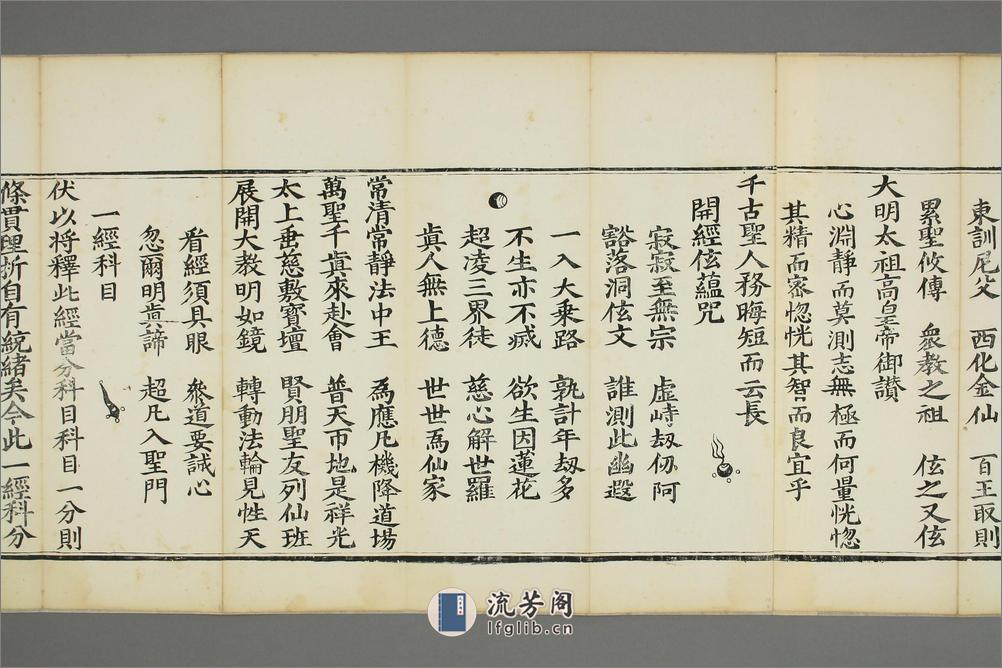 東訓尼父　西化金仙　百王取則
累聖攸傳　衆教之祖　伭之又伭
大明太祖高皇帝御讃
心淵靜而莫測志無極而何量恍惚
其精而密惚恍其智而良宜乎
千古聖人務晦短而云長
開經伭蘊咒
寂寂至無宗　虛峙刼仞阿
豁落洞伭文　誰測此幽遐
一入大乘路　孰計年刼多
不生亦不滅　欲生因蓮花
超凌三界徒　慈心解世羅
眞人無上德　世世爲仙家
常清常靜法中王　爲應凡機降道場
萬聖千眞來赴會　普天帀地是祥光
太上垂慈敷寶壇　賢朋聖友列仙班
展開大教明如鏡　轉動法輪見性天
看經須具眼　叅道要誠心
忽爾明眞諦　超凡入聖門
一經科目
伏以将釋此經當分科目科目一分則
條貫理折自有統緒矣今此一經科分
流芳阁
lfglib.cn